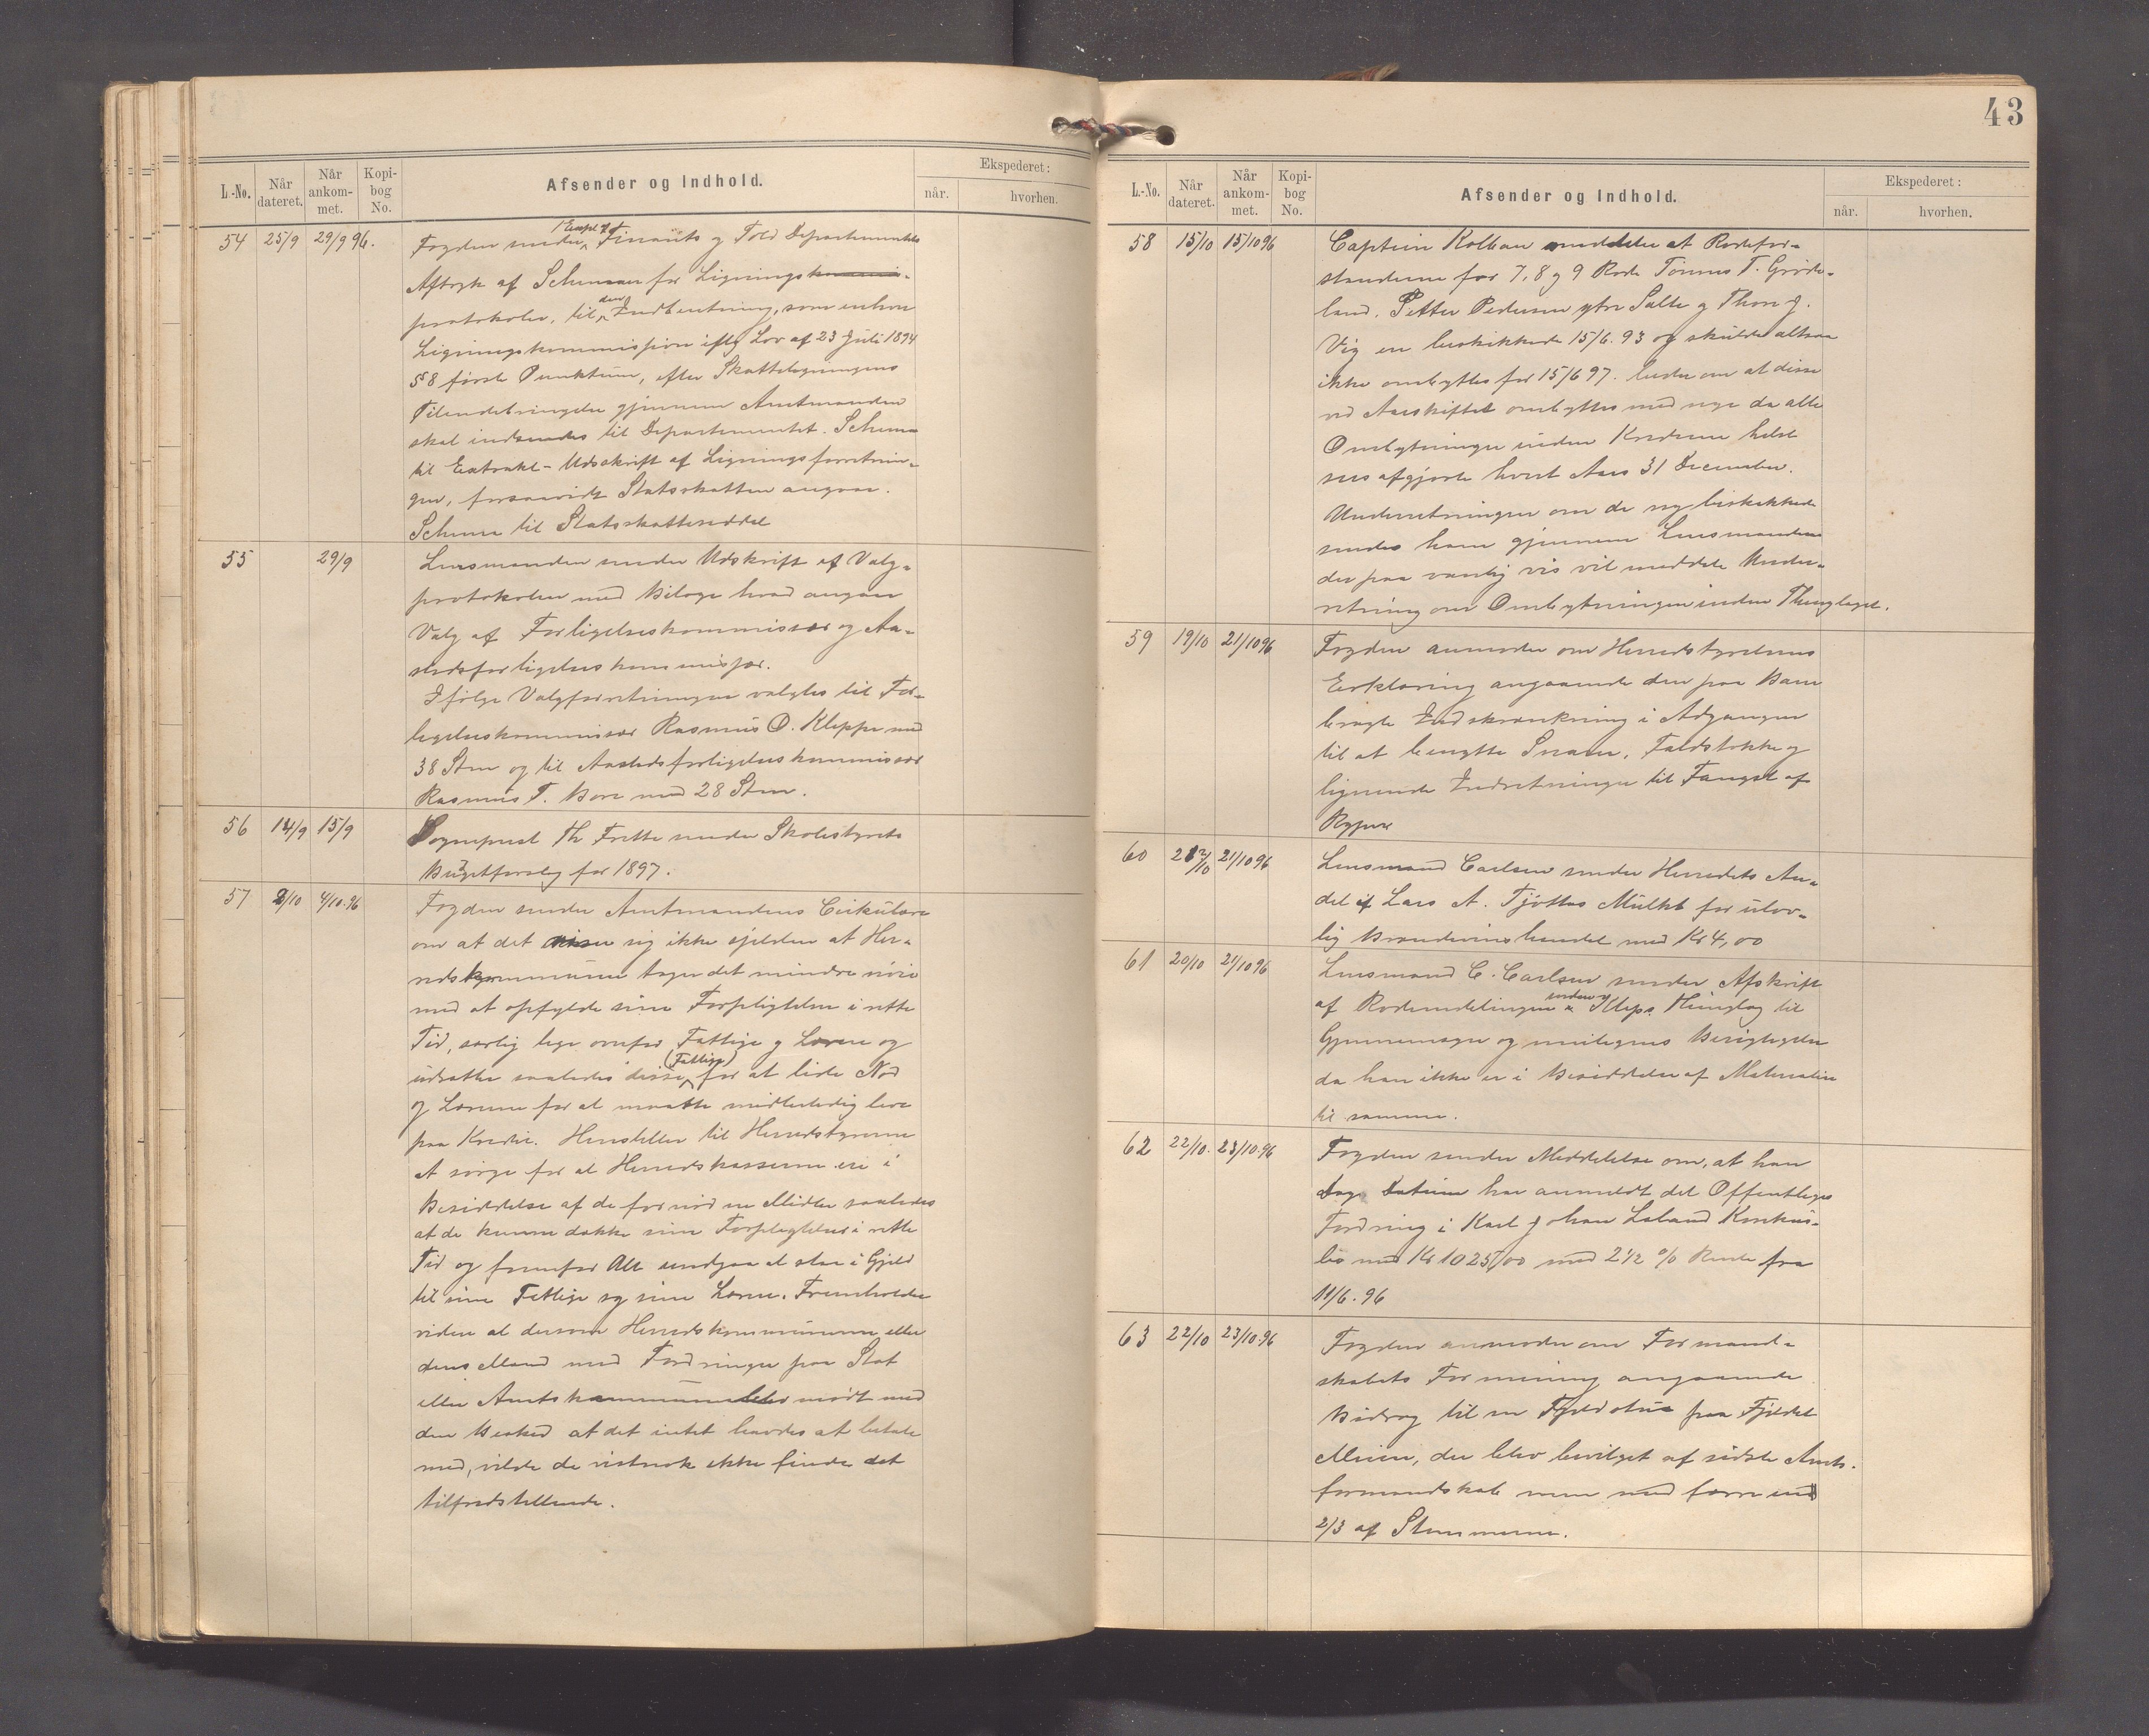 L.-No. Når dateret. Når ankom-met. Kopi-bog No. Afsender og Indhold. Ekspederet: når. hvorhen.
54 25/9 29/9 96. Fogden sender 1 Expl af Finants og Told Departementets
Aftryk af Schemaer for Ligningskommis-
protokoler, til den Indberetning, som enhver
Ligningskommission iflg Lov af 23 Juli 1894
§ 8 første Punktum, efter Skatteligningens
Tilendebringelse gjennem Amtmanden
skal indsendes til Departementet. Schema
til Extrakt-Udskrift af Ligningsforretnin-
gen, forsaavidt Statsskatten angaar.
Schema til Statsskatteseddel
55 29/9 Lensmanden sender Udskrift af Valg-
protokolen med Bilage hvad angaar
Valg af Forligelseskommissær og Aa-
stedsforligelseskommissær.
Ifølge Valgforretningen valgtes til For-
ligelseskommissær Rasmus O. Kleppe med
38 Stm og til Aastedsforligelseskommissær
Rasmus T. Bore med 28 Stm.
56 14/9 15/9 Sogneprest Th Frette sender Skolestyrets
Bugetforslag for 1897.
57 2/10 4/10.96 Fogden sender Amtmandens Cirkulære
om at det viser sig ikke sjelden at Her-
redskommuner tager det mindre nøie
med at opfylde sine Forpligtelser i rette
Tid, særlig lige overfor Fattige og Lærere og
udsætter saaledes disse (Fattige) for at lide Nød
og Lærerne for at maatte midlertidig leve
paa Kredit. Henstiller til Herredstyrerne
at sørge for at Herredskasserne er i
Besiddelse af de fornødne Midler saaledes
at de kunne dække sine Forpligtelser i rette
Tid og fremfor Alt undgaa at staa i Gjeld
til sine Fattige og sine Lærere. Fremholder
videre at dersom Herredskommunerne eller
dens Mænd med Fordringer paa Stat
eller Amtskommune blev mødt med
den Besked at det intet havdes at betale
med, vilde de vistnok ikke finde det
tilfredstillende.
43
L.-No. Når dateret. Når ankom-met. Kopi-bog No. Afsender og Indhold. Ekspederet: når. hvorhen.
58 15/10 15/10 96 Captein Kolban meddeler at Rodefor-
standerne for 7, 8 og 9 Rode Tønnes T. Grøde-
land, Petter Pedersen ytre Salte og Thore J.
Vig er beskikkede 15/6.93 og skulde altsaa
ikke ombyttes før 15/6 97. beder om at disse
ved Aarskiftet ombyttes med nye da alle
Ombytninger inden Kredsene helst
sees afgjorte hvert Aars 31 December.
Underretningen om de ny beskikkede
sendes ham gjennem Lensmanden
der paa vanlig vis vil meddele Under-
retning om Ombytningen inden Thinglaget.
59 19/10 21/10 96 Fogden anmoder om Herredstyrelsens
Erklæring angaaende den paa Bane
bragte Indskrænkning i Adgangen
til at benytte Snarer, Faldstokke og
lignende Indretninger til Fangst af
Ryper
60 2/10 21/10 96 Lensmand Carlsen sender Herredets An-
del af Lars A. Tjøttas Mulkt for ulov-
lig Brændevinshandel med Kr 4,00
61 20/10 21/10 96 Lensmand C. Carlsen sender Afskrift
af Rodeinddelingen inden Kleps Thinglag til
Gjennemsyn og muligens Berigtigelse
da han ikke er i Besiddelse af Materialier
til samme.
62 22/10. 23/10.96 Fogden sender Meddelelse om, at han
Dags Datum har anmeldt det Offentliges
Fordring i Karl Johan Laland Konkurs-
bo med Kr 1025,00 med 2 1/2 % Rente fra
11/6.96
63 22/10 23/10.96 Fogden anmoder om Formand-
skabets Formening angaaende
Bidrag til en Fjeldstue paa Fjeldet
Meien, der blev bevilget af sidste Amts-
formandskab men med færre end
2/3 af Stemmerne.